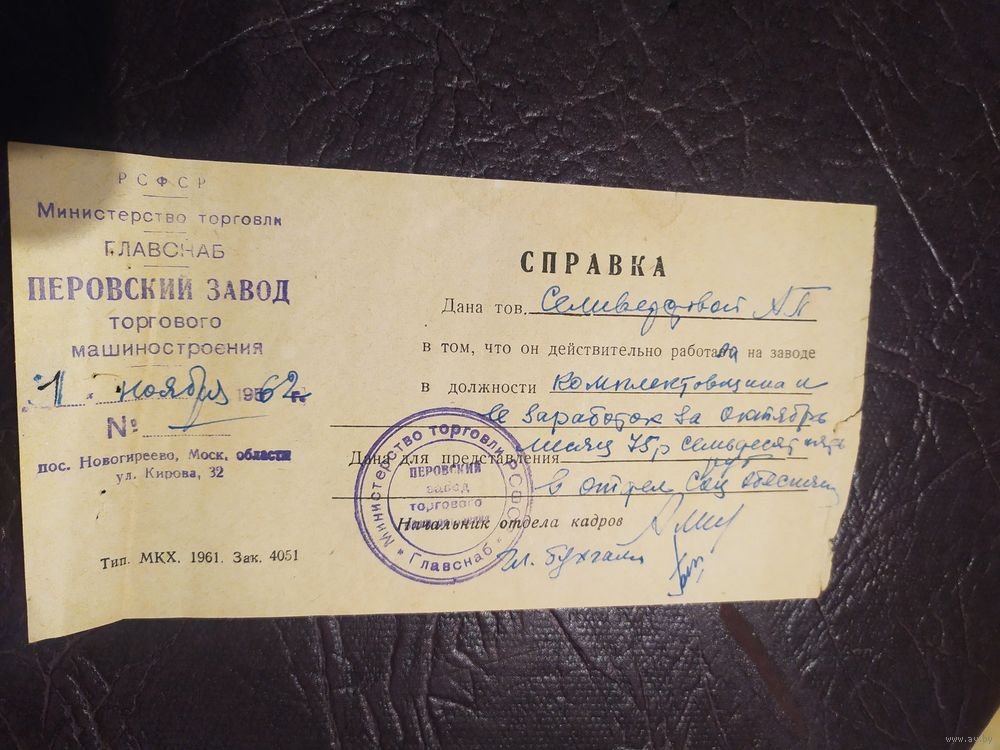 РСФСР
Министерство торговли
ГЛАВСНАБ
ПЕРОВСКИЙ ЗАВОД
торгового
машиностроения
1 ноября 1962
№
пос. Новогиреево, Моск. области
ул. Кирова, 32
Тип. МКХ. 1961. Зак. 4051
СПРАВКА
Дана тов. Селиверстовой АП
в том, что он действительно работала на заводе
в должности комплектовщица и
ее заработок за октябрь
месяц 75р семьдесят пять
Дана для представления руб
в отдел Соц
Начальник отдела кадров
гл. бухгалт
Министерство торговли РСФСР
Главснаб
ПЕРОВСКИЙ
завод
торгового
www.ay.by